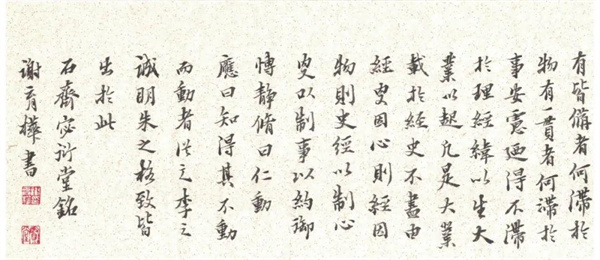 有皆備者何滯於
物有一貫者何滯於
事安憲廼得不滯
於理經緯以生大
業以起凡是大業
載於經史不盡由
經史因心則經因
物則史經以制心
史以制事以約御
愽静脩曰仁動
應曰知得其不動
而動者從之李之
誠明朱之格致皆
出於此
石齋宓衍堂銘
謝育樺書